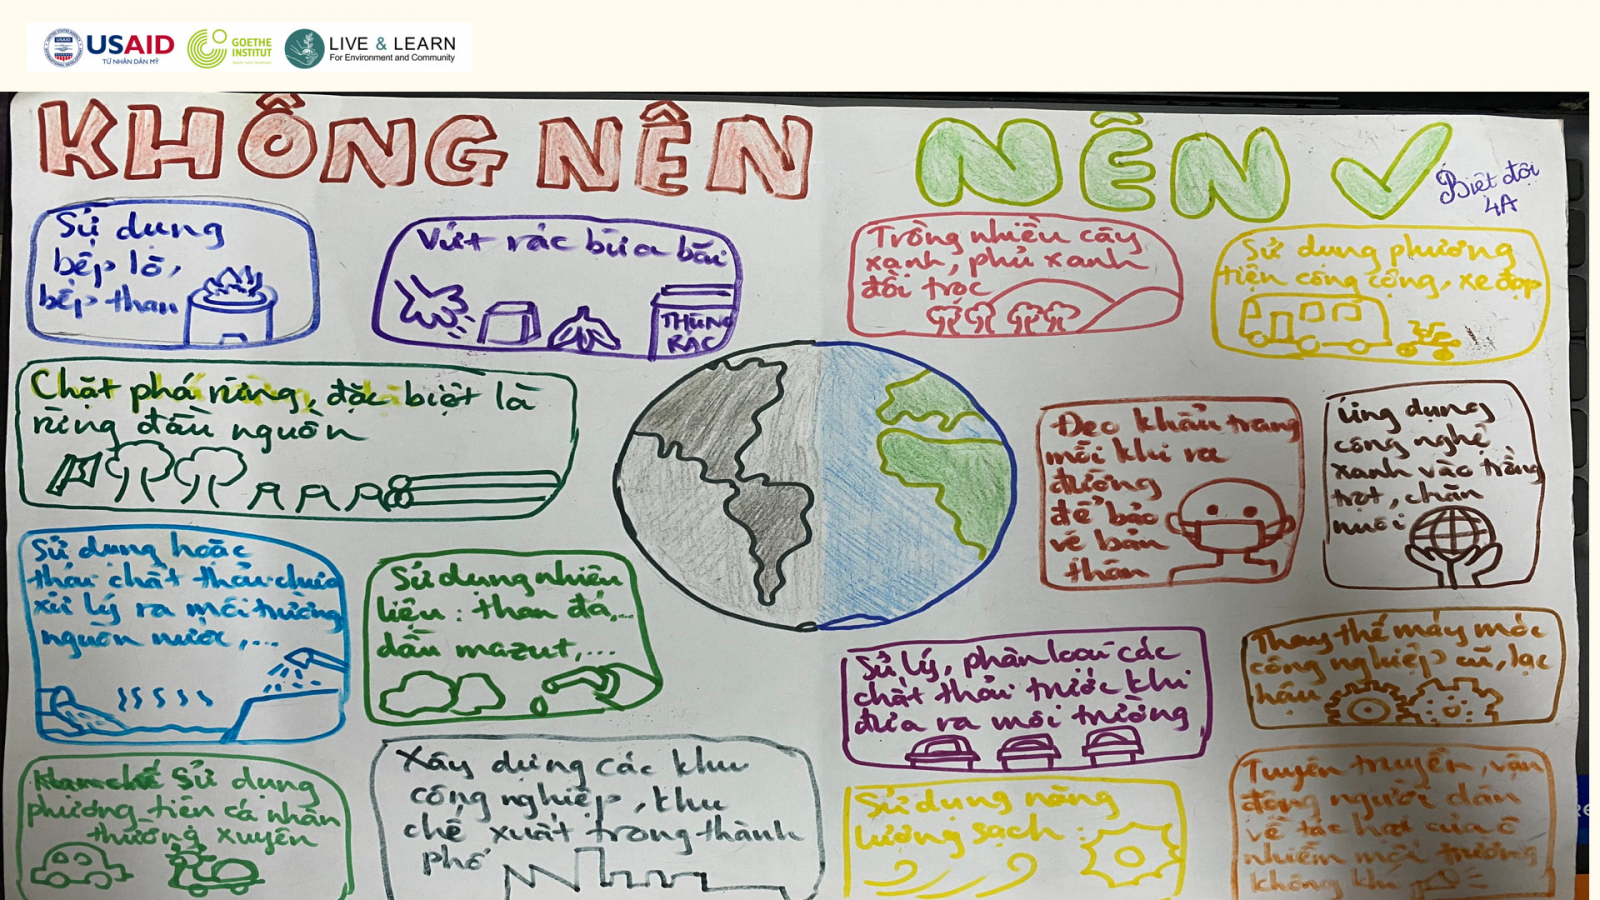 USAID
TỪ NHÂN DÂN MỸ
GOETHE
INSTITUT
LIVE & LEARN
For Environment and Community
KHÔNG NÊN
NÊN
Biệt đội
4A
Sử dụng
bếp lò,
bếp than
Vứt rác bừa bãi
THÙNG
RÁC
Chặt phá rừng, đặc biệt là
rừng đầu nguồn
Sử dụng hoặc
thải chất thải chưa
xử lý ra môi trường,
nguồn nước,...
Sử dụng nhiên
liệu: than đá,...
dầu mazut,...
Hạn chế sử dụng
phương tiện cá nhân
thường xuyên
Xây dựng các khu
công nghiệp, khu
chế xuất trong thành
phố
Trồng nhiều cây
xanh, phủ xanh
đồi trọc
Sử dụng phương
tiện công cộng, xe đạp
Đeo khẩu trang
mỗi khi ra
đường
để bảo
vệ bản
thân
Ứng dụng
công nghệ
xanh vào trồng
trọt, chăn
nuôi
Xử lý, phân loại các
chất thải trước khi
đưa ra môi trường
Thay thế máy móc
công nghiệp cũ, lạc
hậu
Sử dụng năng
lượng sạch
Tuyên truyền, vận
động người dân
về tác hại của ô
nhiễm môi trường
không khí